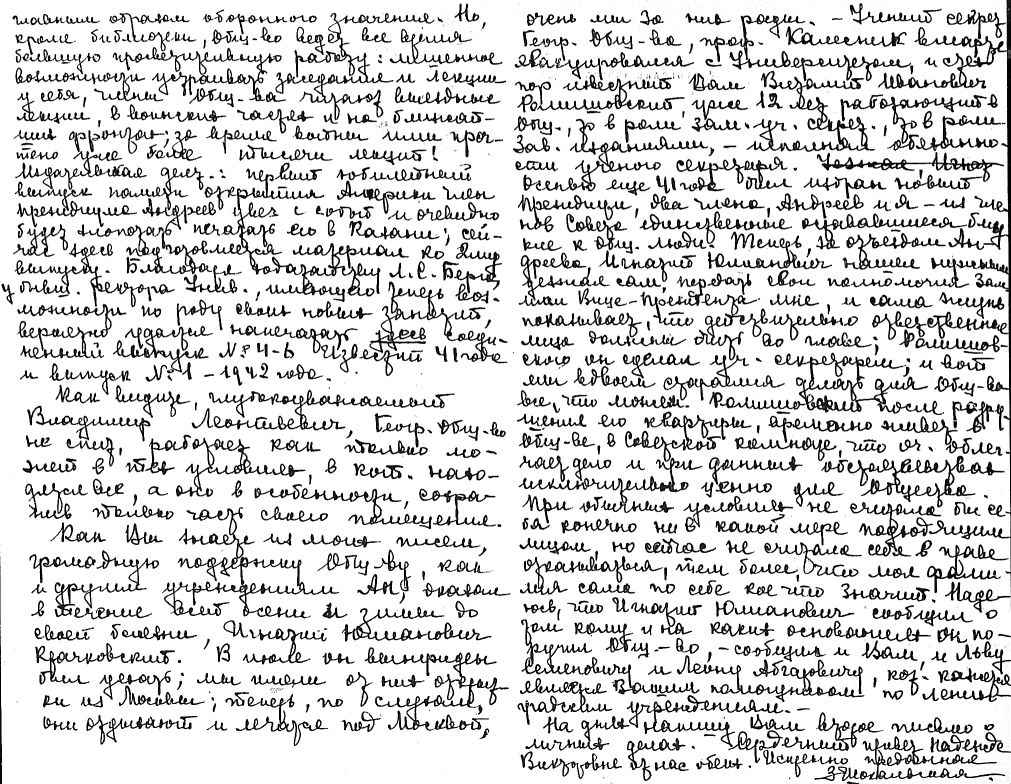 главным образом оборонного значения. Но,
кроме библиотеки, Общ-во ведет все время
большую просветительную работу: лишенное
возможности устраивать заседания и лекции
у себя, члены Общ-ва читают выездные
лекции, в воинских частях и на ближай-
ших фронтах; за время войны ими проч-
тено уже более тысячи лекций!
Издательская деят.: первый юбилейный
выпуск памяти открытия Америки член
президиума Андреев увез с собой и очевидно
будет хлопотать печатать его в Казани; сей-
час здесь подготовляется материал ко 2му
выпуску. Благодаря ходатайству Л.С. Берга,
у бывш. ректора Унив., имеющего теперь воз-
можности по роду своих новых занятий,
вероятно удастся напечатать здесь соеди-
ненный выпуск № 4-6 Известий 41 года
и выпуск № 1 - 1942 года.
Как видите, глубокоуважаемый
Владимир Леонтьевич, Геогр. Общ-во
не спит, работает как только мо-
жет в тех условиях, в кот. нахо-
дятся все, а оно в особенности, сохра-
нив только часть своего помещения.
Как Вы знаете из моих писем,
громадную поддержку Общ-ву, как
и другим учреждениям АН, оказал
в течение всей осени и зимы до
своей болезни, Игнатий Юлианович
Крачковский. В июле он вынужден
был уехать; мы имели от них открыт-
ки из Москвы; теперь, по слухам,
они отдыхают и лечатся под Москвой,
очень мы за них рады. - Ученый секрет.
Геогр. Общ-ва, проф. Калесник в марте
эвакуировался с Университетом, и с тех
пор известный Вам Виталий Иванович
Ромишовский, уже 12 лет работающий в
Общ., то в роли зам. уч. секрет., то в роли
зав. изданиями, - исполняя обязанно-
сти ученого секретаря.
Осенью еще 41 года был избран новый
президиум, два члена, Андреев и я - из чле-
нов Совета единственные оставшиеся близ-
кие к общ. люди. Теперь, за отъездом Ан-
дреева, Игнатий Юлианович нашел нужным
уезжая сам, передать свои полномочия зам.
или Вице-Президента мне, и сама жизнь
показывает, что действительно ответственные
лица должны быть во главе; Ромишов-
ского он сделал уч. секретарем; и вот
мы вдвоем стараемся делать для Общ-ва
все, что можем. Ромишовский после разру-
шения его квартиры, временно живет в
Общ-ве, в Советской комнате, что оч. облег-
чает дело и при данных обстоятельствах
исключительно ценно для Общества.
При обычных условиях не считала бы се-
бя конечно ни в какой мере подходящим
лицом, но сейчас не считаю себя в праве
отказываться, тем более, что моя фами-
лия сама по себе кое что значит. Наде-
юсь, что Игнатий Юлианович сообщил о
том кому и на каких основаниях он по-
ручил Общ-во, - сообщил и Вам, и Льву
Семеновичу и Леону Абгаровичу, кот. кажется
является Вашим помощником по ленин-
градским учреждениям. -
На днях напишу Вам второе письмо о
личных делах. Сердечный привет Надежде
Викторовне от нас обеих. Искренно преданная
З. Шокальская